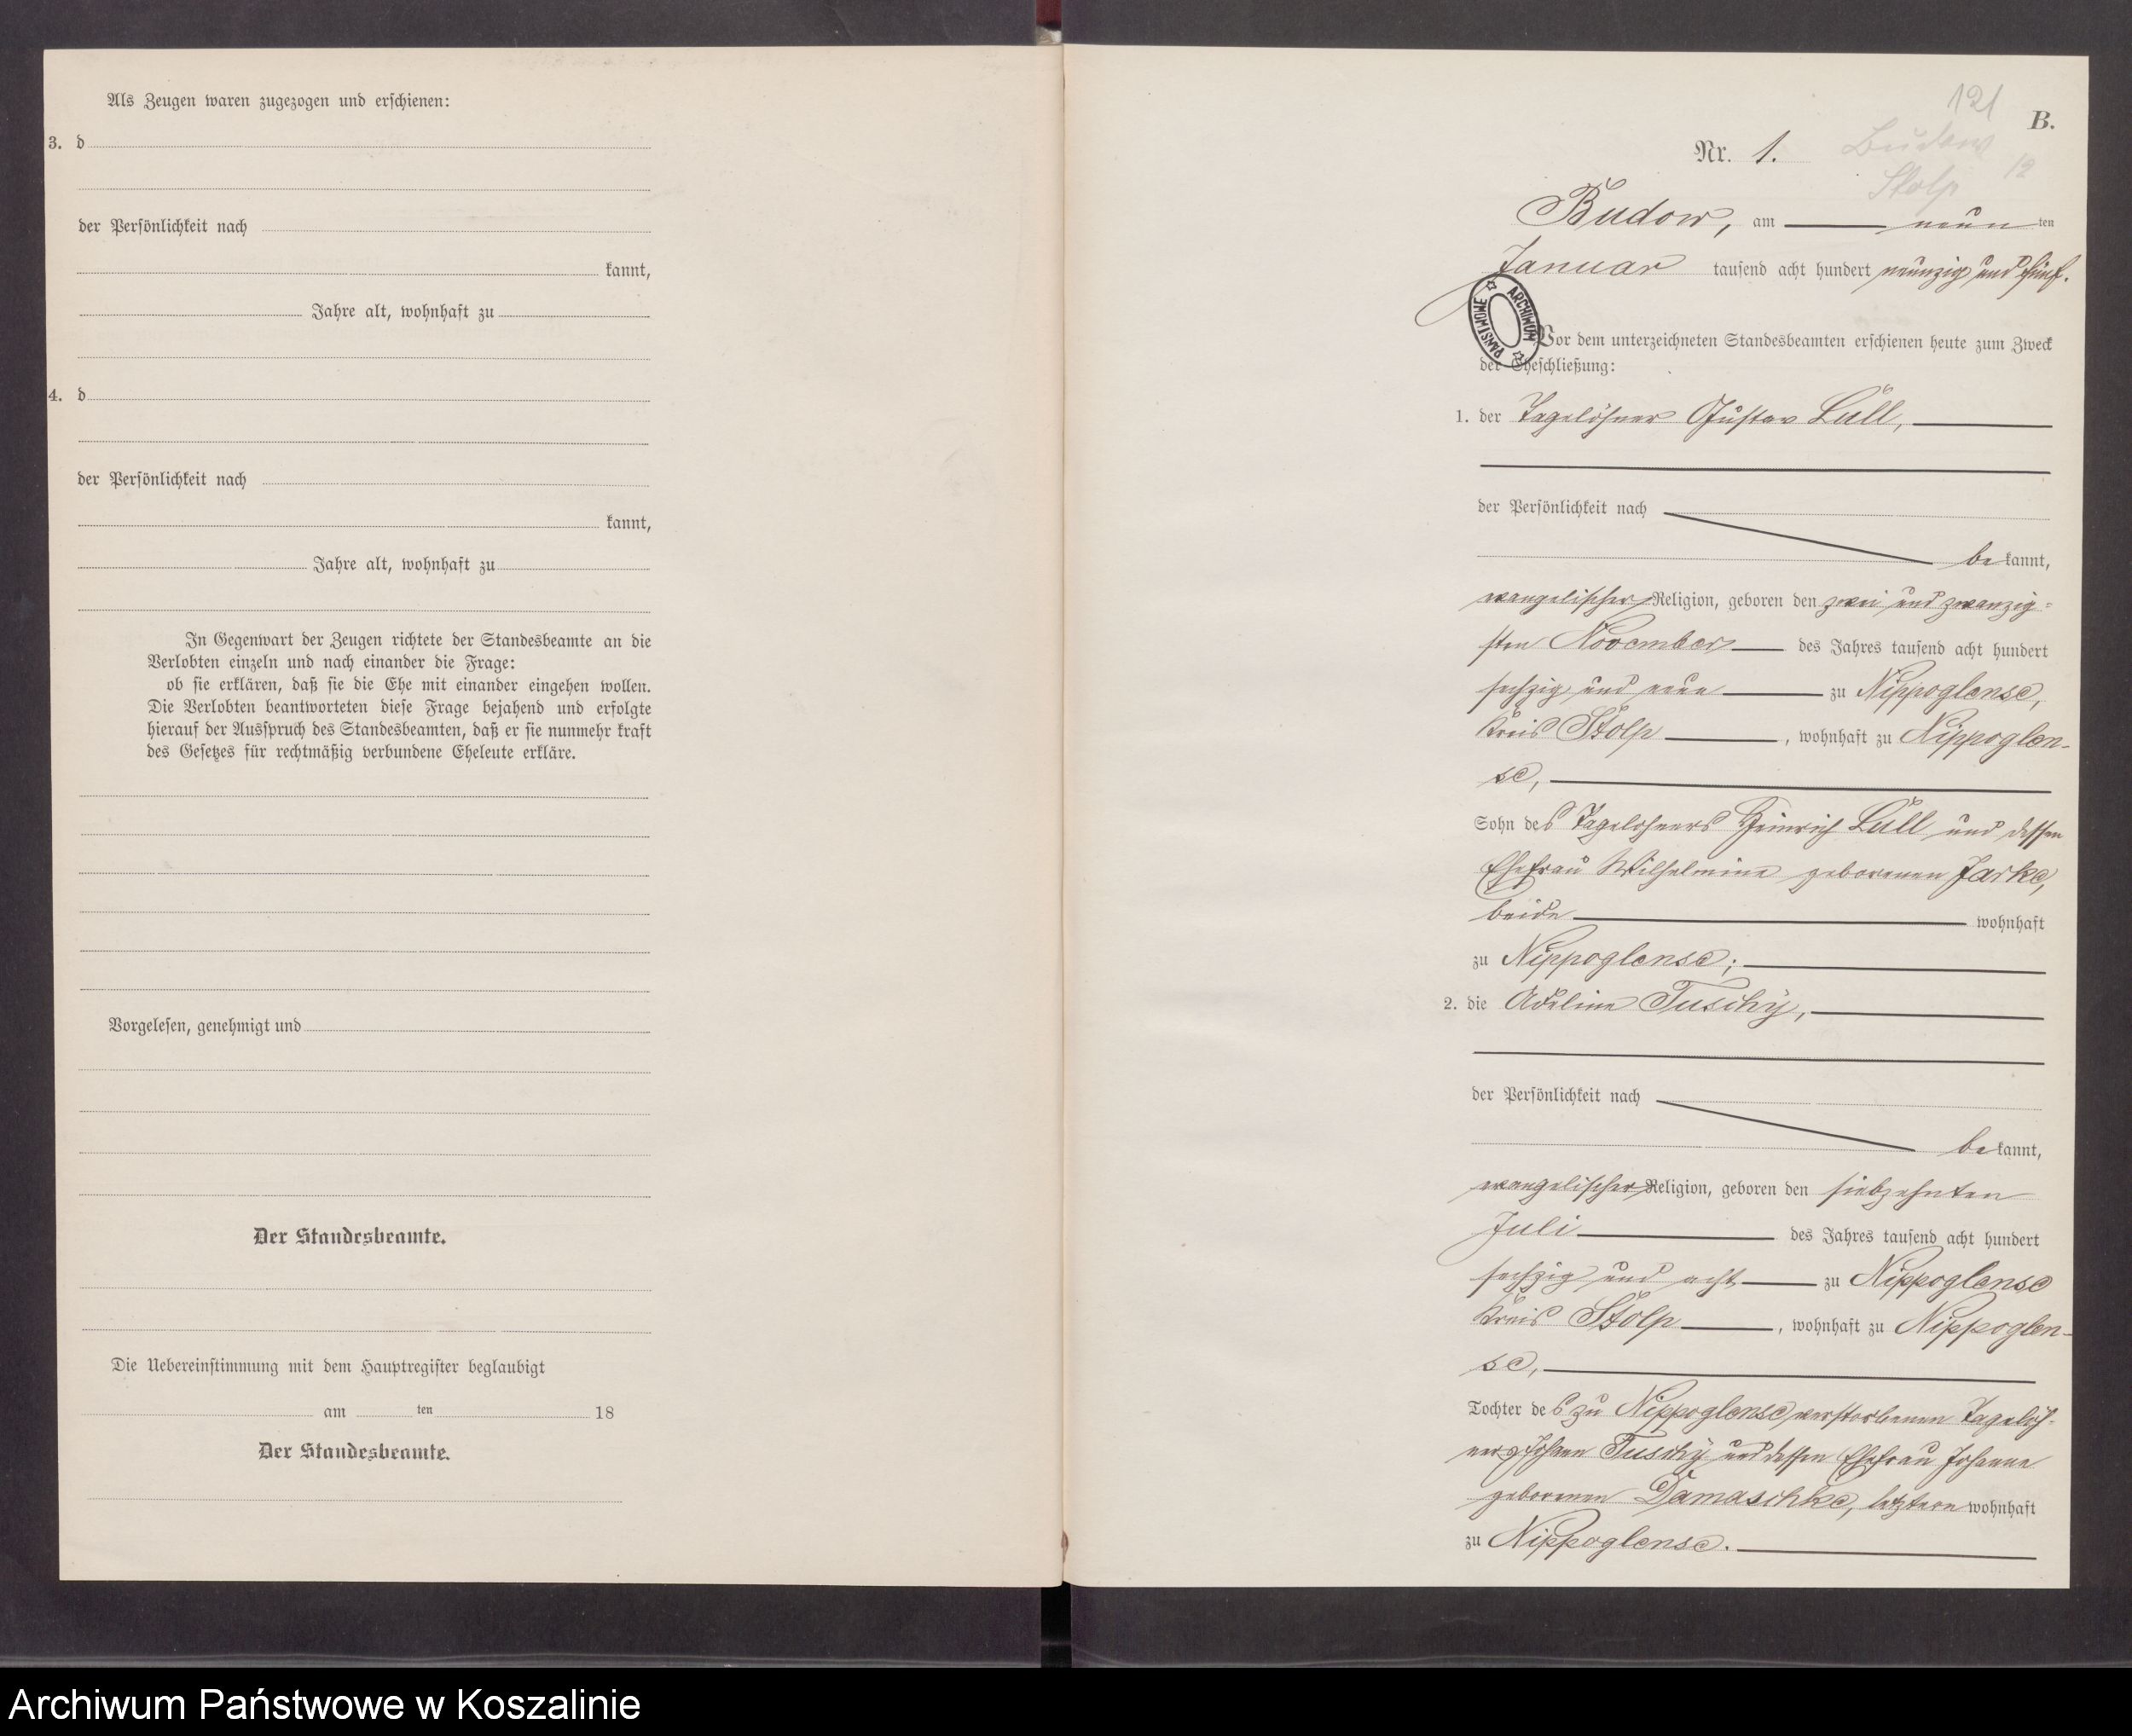 Als Zeugen waren zugezogen und erschienen:
3. d
der Persönlichkeit nach
kannt,
Jahre alt, wohnhaft zu
4. d
der Persönlichkeit nach
kannt,
Jahre alt, wohnhaft zu
In Gegenwart der Zeugen richtete der Standesbeamte an die
Verlobten einzeln und nach einander die Frage:
ob sie erklären, daß sie die Ehe mit einander eingehen wollen.
Die Verlobten beantworteten diese Frage bejahend und erfolgte
hierauf der Ausspruch des Standesbeamten, daß er sie nunmehr kraft
des Gesetzes für rechtmäßig verbundene Eheleute erkläre.
Vorgelesen, genehmigt und
Der Standesbeamte.
Die Uebereinstimmung mit dem Hauptregister beglaubigt
am ten 18
Der Standesbeamte.
121
B.
Nr. 1. Budow
Stolp 12
Budow, am neun ten
Januar tausend acht hundert neunzig und fünf.
ARCHIWUM PAŃSTWOWE
Vor dem unterzeichneten Standesbeamten erschienen heute zum Zweck
der Eheschließung:
1. der Tagelöhner Gustav Lüll,
der Persönlichkeit nach
bekannt,
evangelischer Religion, geboren den zwei und zwanzig-
sten November des Jahres tausend acht hundert
sechzig und neun zu Nippoglense,
Kreis Stolp, wohnhaft zu Nippoglen-
se,
Sohn des Tagelohners Heinrich Lüll und dessen
Ehefrau Wilhelmine geborenen Jarke,
beide wohnhaft
zu Nippoglense;
2. die Adeline Tuschy,
der Persönlichkeit nach
bekannt,
evangelischer Religion, geboren den siebzehnten
Juli des Jahres tausend acht hundert
sechzig und acht zu Nippoglense
Kreis Stolp, wohnhaft zu Nippoglen-
se,
Tochter des zu Nippoglense verstorbenen Tagelöh-
ners Johann Tuschy und dessen Ehefrau Johanne
geborenen Damaschke, letztere wohnhaft
zu Nippoglense.
Archiwum Państwowe w Koszalinie